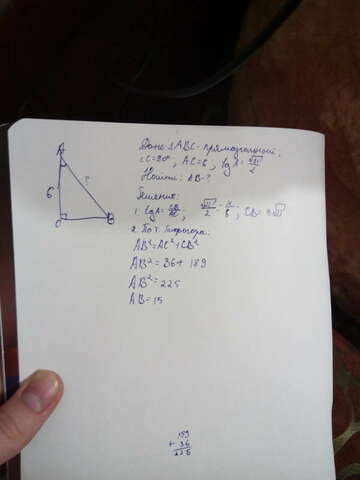 A
6
?
C
B
Дано: △ABC - прямоугольный;
∠C=90°, AC=6, tg A=
Найти: AB-?
Решение:
1. tg A = CB/AC;
2. По т. Пифагора:
AB²=AC²+CB²
AB²=36+189
AB²=225
AB=15
189
+ 36
225